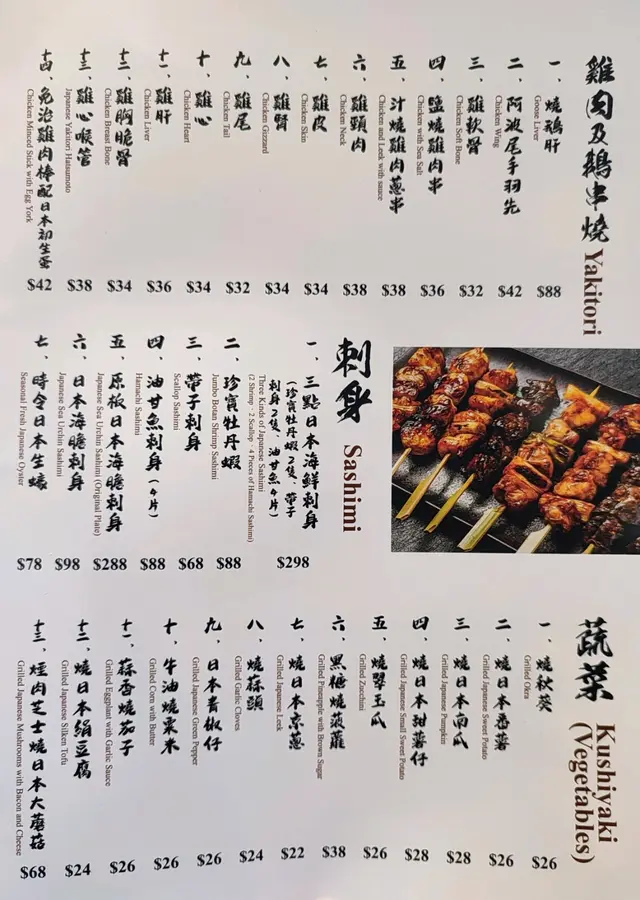 雞肉及鵝串燒 Yakitori
一、燒鵝肝 $88
Goose Liver
二、阿波尾手羽先 $42
Chicken Wing
三、雞軟骨 $32
Chicken Soft Bone
四、鹽燒雞肉串 $36
Chicken with Sea Salt
五、汁燒雞肉蔥串 $38
Chicken and Leek with sauce
六、雞頸肉 $38
Chicken Neck
七、雞皮 $34
Chicken Skin
八、雞腎 $34
Chicken Gizzard
九、雞尾 $32
Chicken Tail
十、雞心 $34
Chicken Heart
十一、雞肝 $36
Chicken Liver
十二、雞胸脆骨 $34
Chicken Breast Bone
十三、雞心喉管 $38
Japanese Yakitori Hatsumoto
十四、免治雞肉棒配日本初生蛋 $42
Chicken Minced Stick with Egg York
刺身 Sashimi
一、三點日本海鮮刺身 $298
(珍寶牡丹蝦2隻、帶子
刺身2隻、油甘魚4片)
Three Kinds of Japanese Sashimi
(2 Shrimp、2 Scallop、4 Pieces of Hamachi Sashimi)
二、珍寶牡丹蝦 $88
Jumbo Botan Shrimp Sashimi
三、帶子刺身 $68
Scallop Sashimi
四、油甘魚刺身(4片) $88
Hamachi Sashimi
五、原板日本海膽刺身 $288
Japanese Sea Urchin Sashimi (Original Plate)
六、日本海膽刺身 $98
Japanese Sea Urchin Sashimi
七、時令日本生蠔 $78
Seasonal Fresh Japanese Oyster
蔬菜 Kushiyaki
(Vegetables)
一、燒秋葵 $26
Grilled Okra
二、燒日本番薯 $26
Grilled Japanese Sweet Potato
三、燒日本南瓜 $28
Grilled Japanese Pumpkin
四、燒日本甜薯仔 $28
Grilled Japanese Small Sweet Potato
五、燒翠玉瓜 $26
Grilled Zucchini
六、黑糖燒菠蘿 $38
Grilled Pineapple with Brown Sugar
七、燒日本京蔥 $22
Grilled Japanese Leek
八、燒蒜頭 $24
Grilled Garlic Cloves
九、日本青椒仔 $26
Grilled Japanese Green Pepper
十、牛油燒粟米 $26
Grilled Corn with Butter
十一、蒜香燒茄子 $26
Grilled Eggplant with Garlic Sauce
十二、燒日本絹豆腐 $24
Grilled Japanese Silken Tofu
十三、煙肉芝士燒日本大蘑菇 $68
Grilled Japanese Mushrooms with Bacon and Cheese